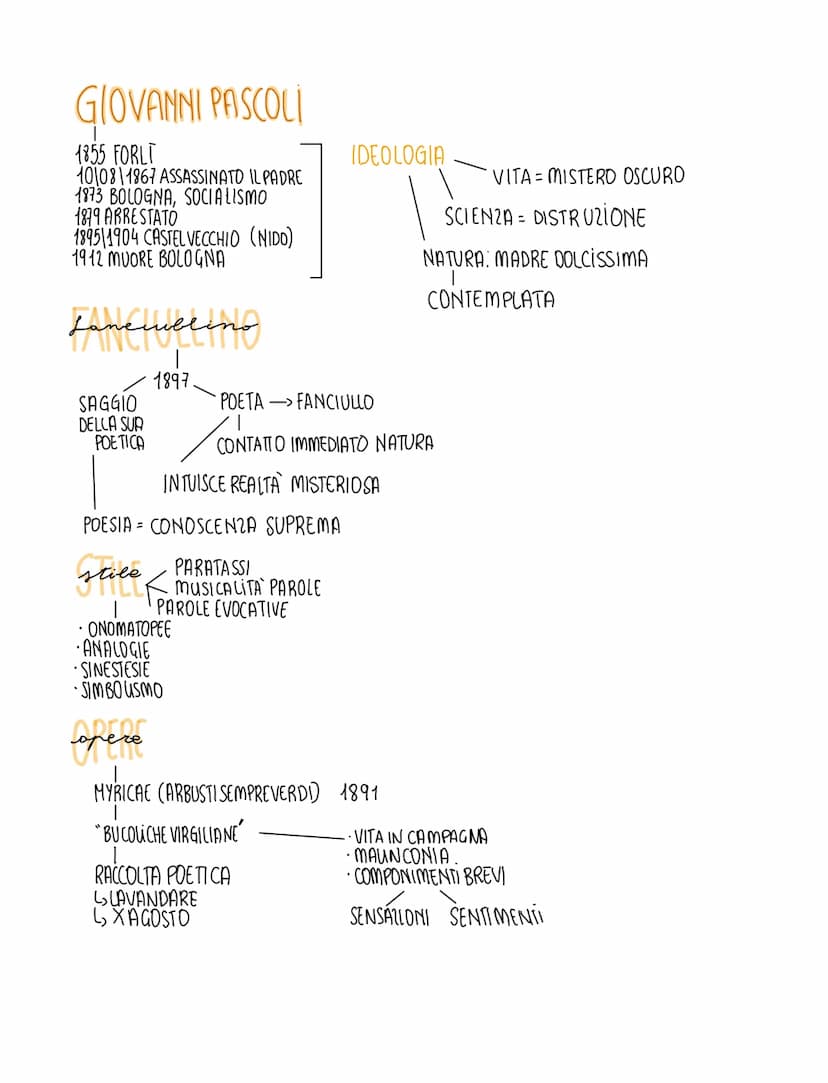 GIOVANNI PASCOLI
1855 FORLÌ
10\08\1867 ASSASSINATO IL PADRE
1873 BOLOGNA, SOCIALISMO
1879 ARRESTATO
1895\1904 CASTELVECCHIO (NIDO)
1912 MUORE BOLOGNA
IDEOLOGIA
VITA = MISTERO OSCURO
SCIENZA = DISTRUZIONE
NATURA: MADRE DOLCISSIMA
CONTEMPLATA
FANCIULLINO
fanciullino
1897
SAGGIO
DELLA SUA
POETICA
POETA —> FANCIULLO
CONTATTO IMMEDIATO NATURA
INTUISCE REALTÀ MISTERIOSA
POESIA = CONOSCENZA SUPREMA
STILE
stile
PARATASSI
MUSICALITÀ PAROLE
PAROLE EVOCATIVE
· ONOMATOPEE
· ANALOGIE
· SINESTESIE
· SIMBOLISMO
OPERE
opere
MYRICAE (ARBUSTI SEMPREVERDI) 1891
"BUCOLICHE VIRGILIANE"
· VITA IN CAMPAGNA
· MALINCONIA.
· COMPONIMENTI BREVI
RACCOLTA POETICA
↳ LAVANDARE
↳ X AGOSTO
SENSAZIONI SENTIMENTI